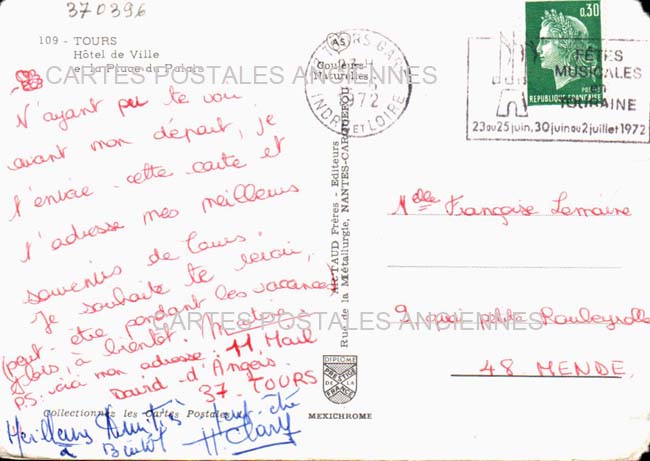 370396
109 - TOURS
Hôtel de Ville
et la Place du Palais
CARTES POSTALES ANCIENNES
N'ayant pu te voir
avant mon départ, je
t'envoie cette carte et
t'adresse mes meilleurs
souvenirs de Tours.
Je souhaite te revoir,
(peut-être pendant les vacances)
à bientôt.
PS: voici mon adresse: 11, Mail
David-d'Angers
37-TOURS
Collectionnez les Cartes Postales
Meilleures Amitiés
à Bientôt
Couleurs
Naturelles
TOURS GARE
1972
INDRE ET LOIRE
Frères - Editeurs
Rue de la Métallurgie, NANTES-CARQUEFOU
DIPLOME
PRESTIGE
DE LA
FRANCE
MEXICHROME
0,30
POSTES
REPUBLIQUE FRANÇAISE
FÊTES
MUSICALES
en
TOURAINE
23 au 25 juin, 30 juin au 2 juillet 1972
Melle Françoise Lemaire
9
48-MENDE.
CARTES POSTALES ANCIENNES